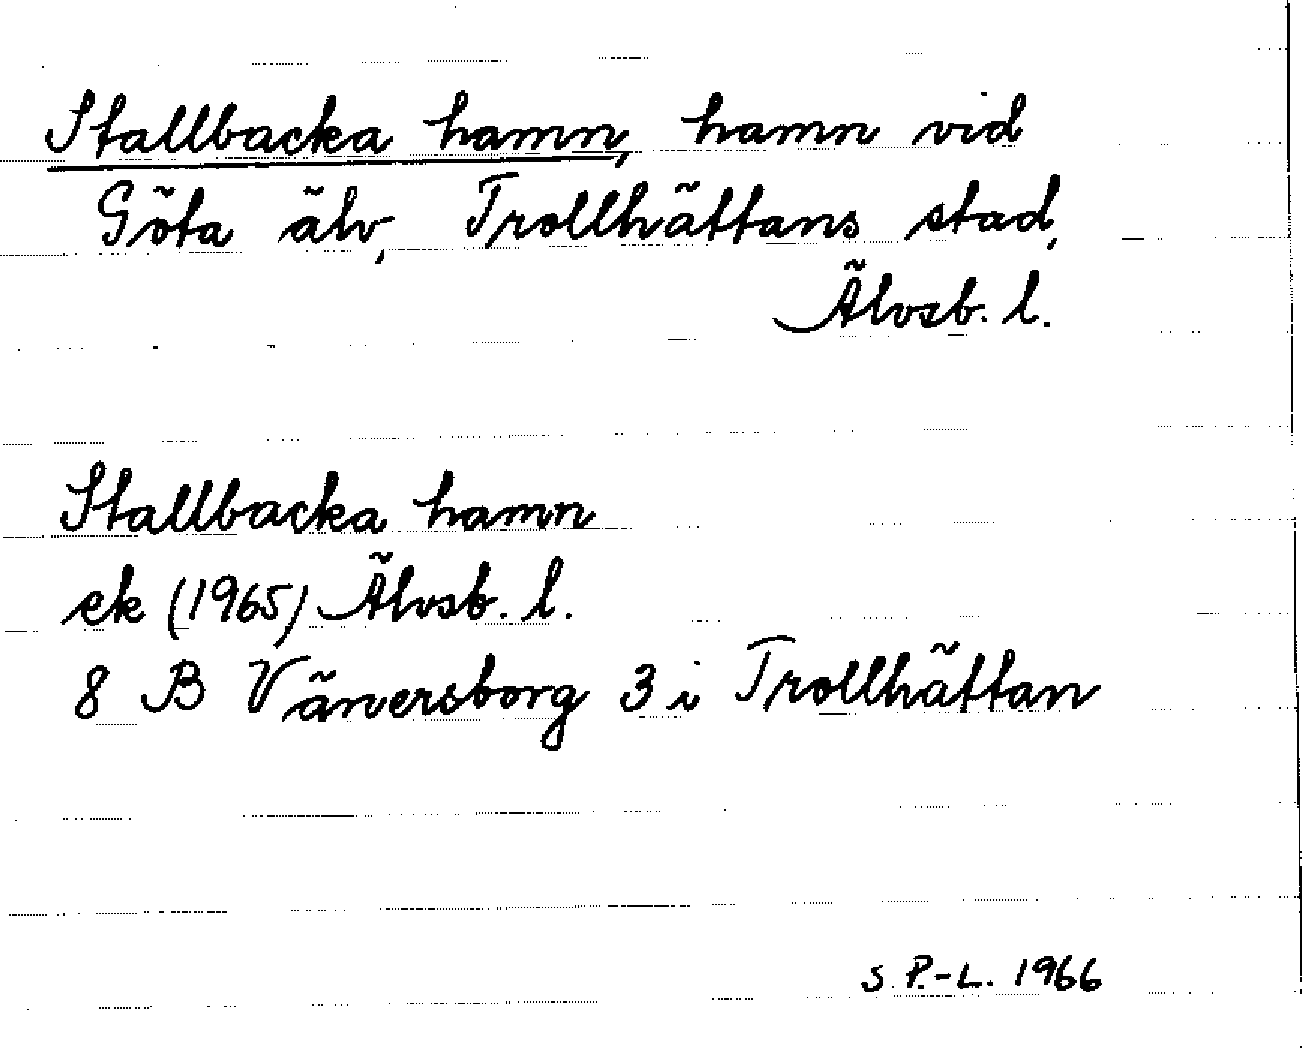 Stallbacka hamn, hamn vid
Göta älv, Trollhättans stad,
Älvsb. l.
Stallbacka hamn
ek (1965) Älvsb. l.
8 B Vänersborg 3 i Trollhättan
S. P.-L. 1966